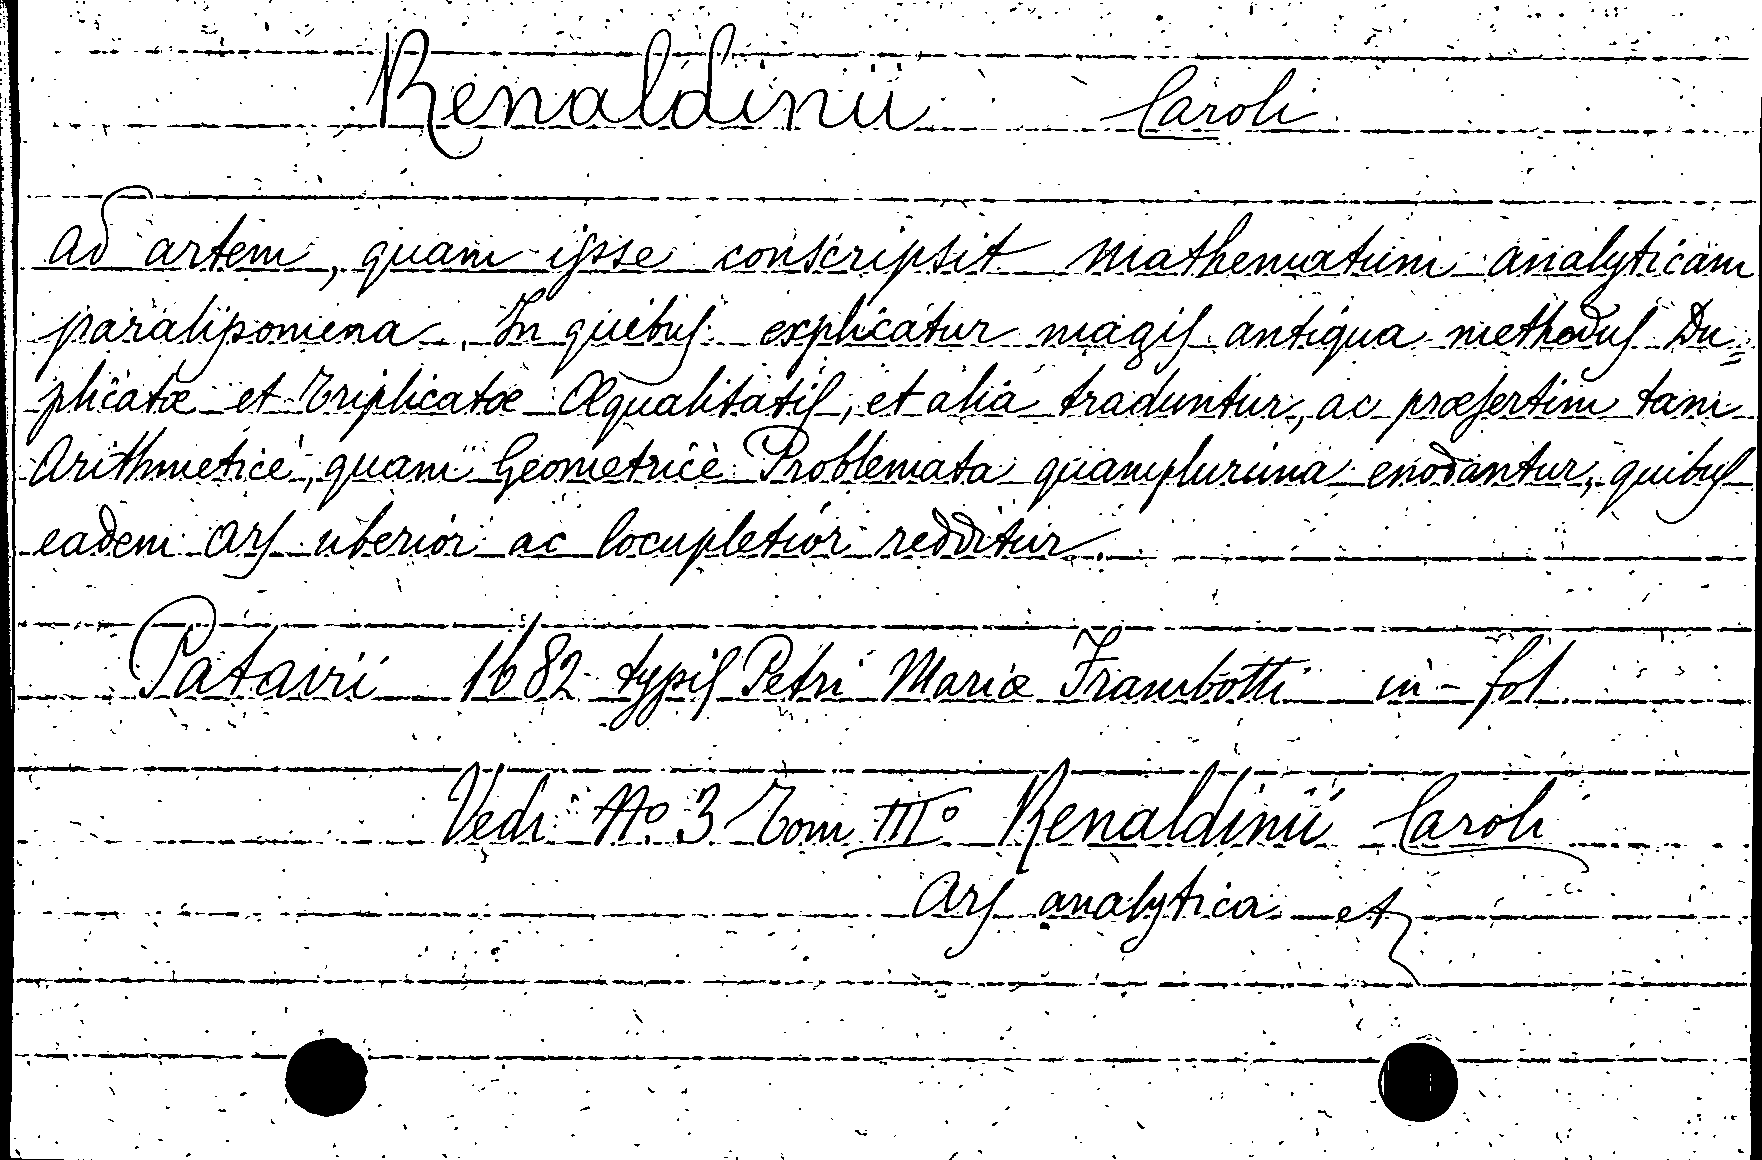 Renaldinii Caroli
Ad artem, quam ipse conscripsit mathematum analyticam
paralipomena. In quibus explicatur magis antiqua methodus Du=
plicatæ et Triplicatæ Æqualitatis, et alia traduntur, ac præsertim tam
Arithmeticè, quam Geometricè Problemata quamplurima enodantur, quibus
eadem Ars uberior ac locupletior redditur.
Patavii 1682 typis Petri Mariæ Frambotti in-fol
Vedi No. 3 Tom IIIo Renaldinii Caroli
Ars analytica et